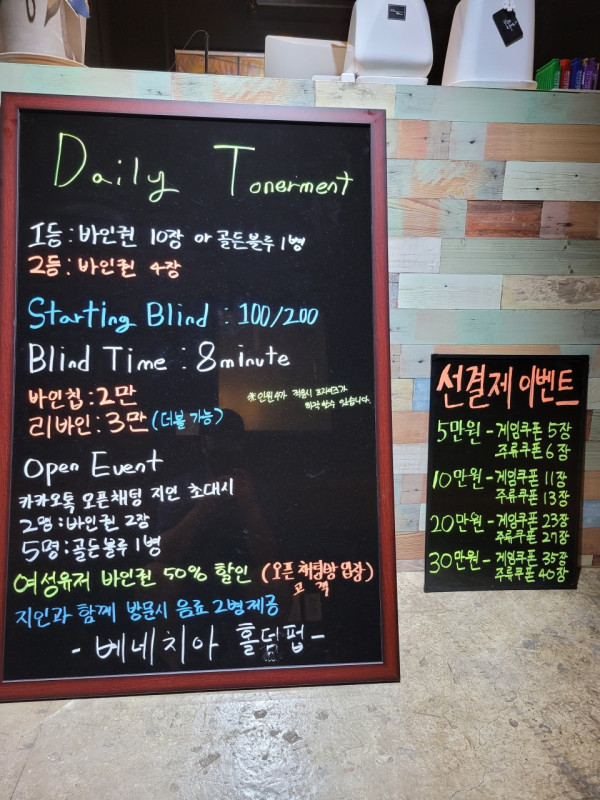 Daily Tonerment
1등 : 바인권 10장 or 골든블루 1병
2등 : 바인권 4장
Starting Blind : 100/200
Blind Time : 8minute
바인칩 : 2만
리바인 : 3만 (더블 가능)
※인원수가 적을시 프라이즈가
할 수 있습니다.
Open Event
카카오톡 오픈채팅 지인 초대시
2명 : 바인권 2장
5명 : 골든블루 1병
여성유저 바인권 50% 할인 (오픈채팅방 입장)
고객
지인과 함께 방문시 음료 2병제공
- 베네치아 홀덤펍 -
선결제 이벤트
5만원 - 게임쿠폰 5장
주류쿠폰 6장
10만원 - 게임쿠폰 11장
주류쿠폰 13장
20만원 - 게임쿠폰 23장
주류쿠폰 27장
30만원 - 게임쿠폰 35장
주류쿠폰 40장